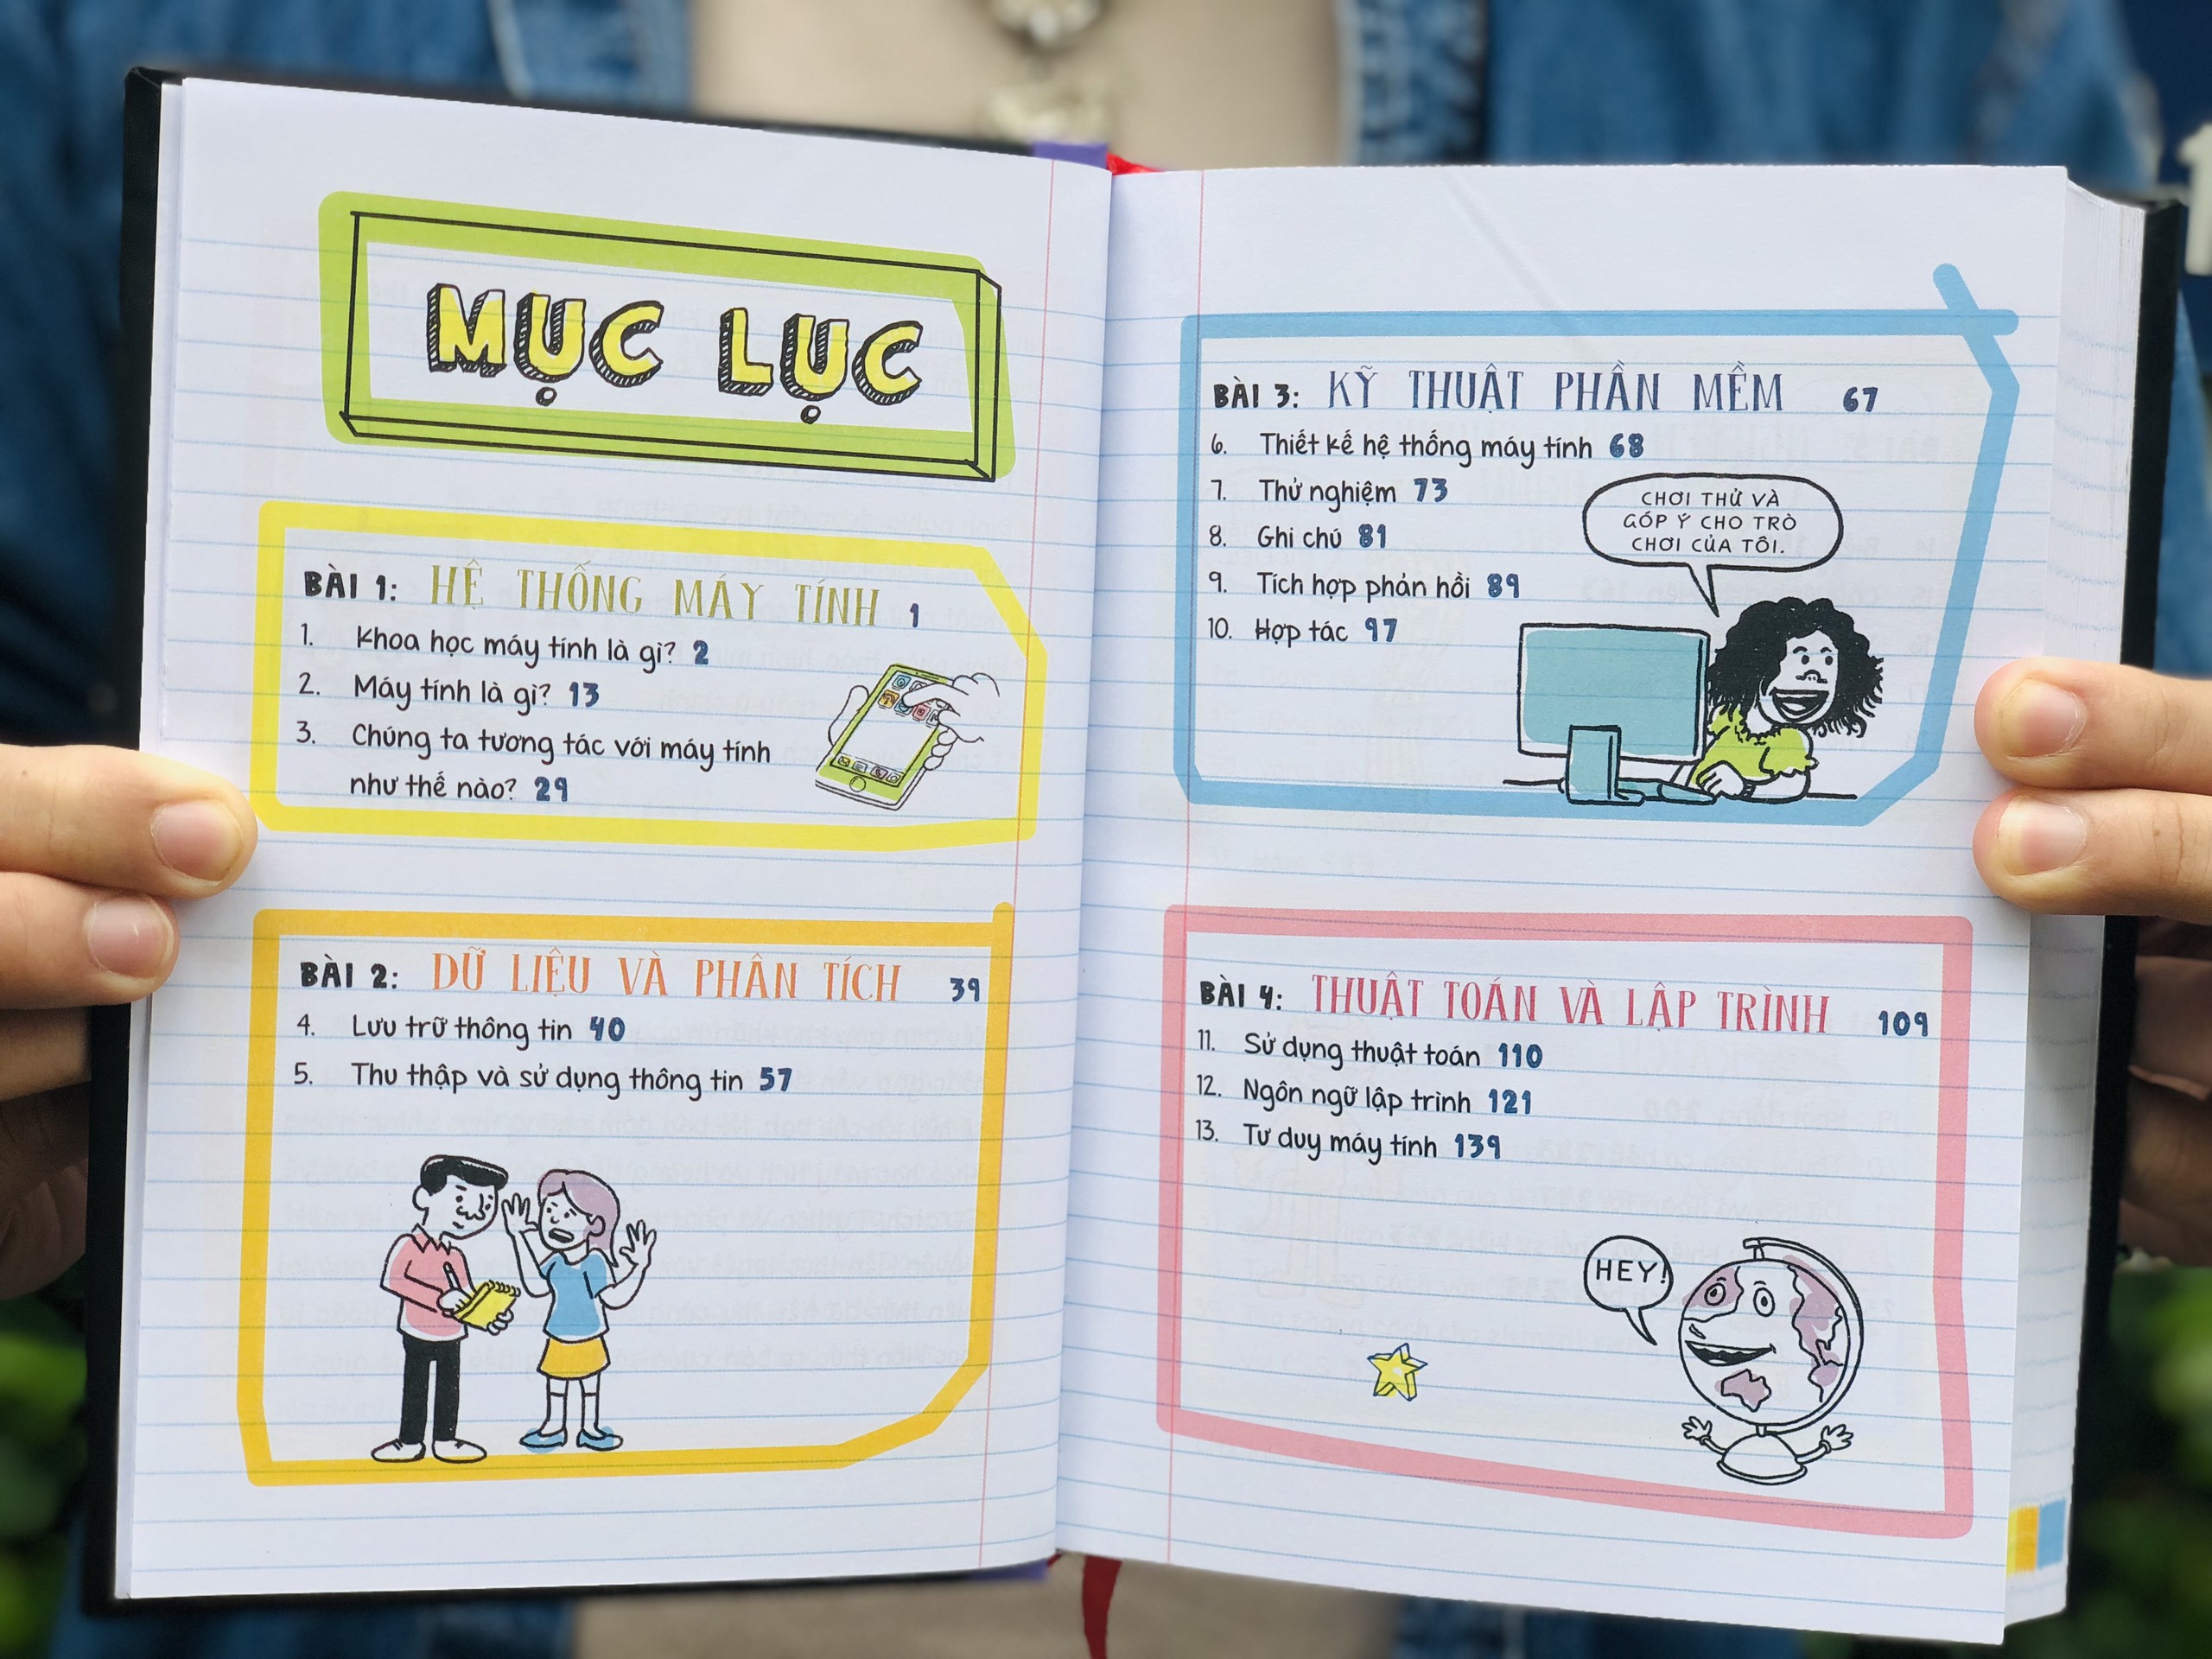 MỤC LỤC
BÀI 1: HỆ THỐNG MÁY TÍNH 1
1. Khoa học máy tính là gì? 2
2. Máy tính là gì? 13
3. Chúng ta tương tác với máy tính
như thế nào? 29
BÀI 2: DỮ LIỆU VÀ PHÂN TÍCH 39
4. Lưu trữ thông tin 40
5. Thu thập và sử dụng thông tin 57
BÀI 3: KỸ THUẬT PHẦN MỀM 67
6. Thiết kế hệ thống máy tính 68
7. Thử nghiệm 73
8. Ghi chú 81
9. Tích hợp phản hồi 89
10. Hợp tác 97
CHƠI THỬ VÀ
GÓP Ý CHO TRÒ
CHƠI CỦA TÔI.
BÀI 4: THUẬT TOÁN VÀ LẬP TRÌNH 109
11. Sử dụng thuật toán 110
12. Ngôn ngữ lập trình 121
13. Tư duy máy tính 139
HEY!